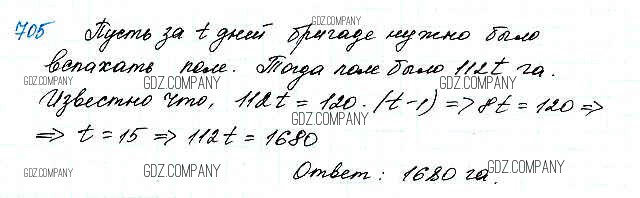 705 Пусть за t дней бригаде нужно было
GDZ.COMPANY
вспахать поле. Тогда поле было 112t га.
GDZ.COMPANY GDZ.COMPANY
Известно что, 112t = 120·(t-1) => 8t = 120 =>
GDZ.COMPANY
=> t = 15 => 112t = 1680
GDZ.COMPANY GDZ.COMPANY GDZ.COMPANY
Ответ: 1680 га.